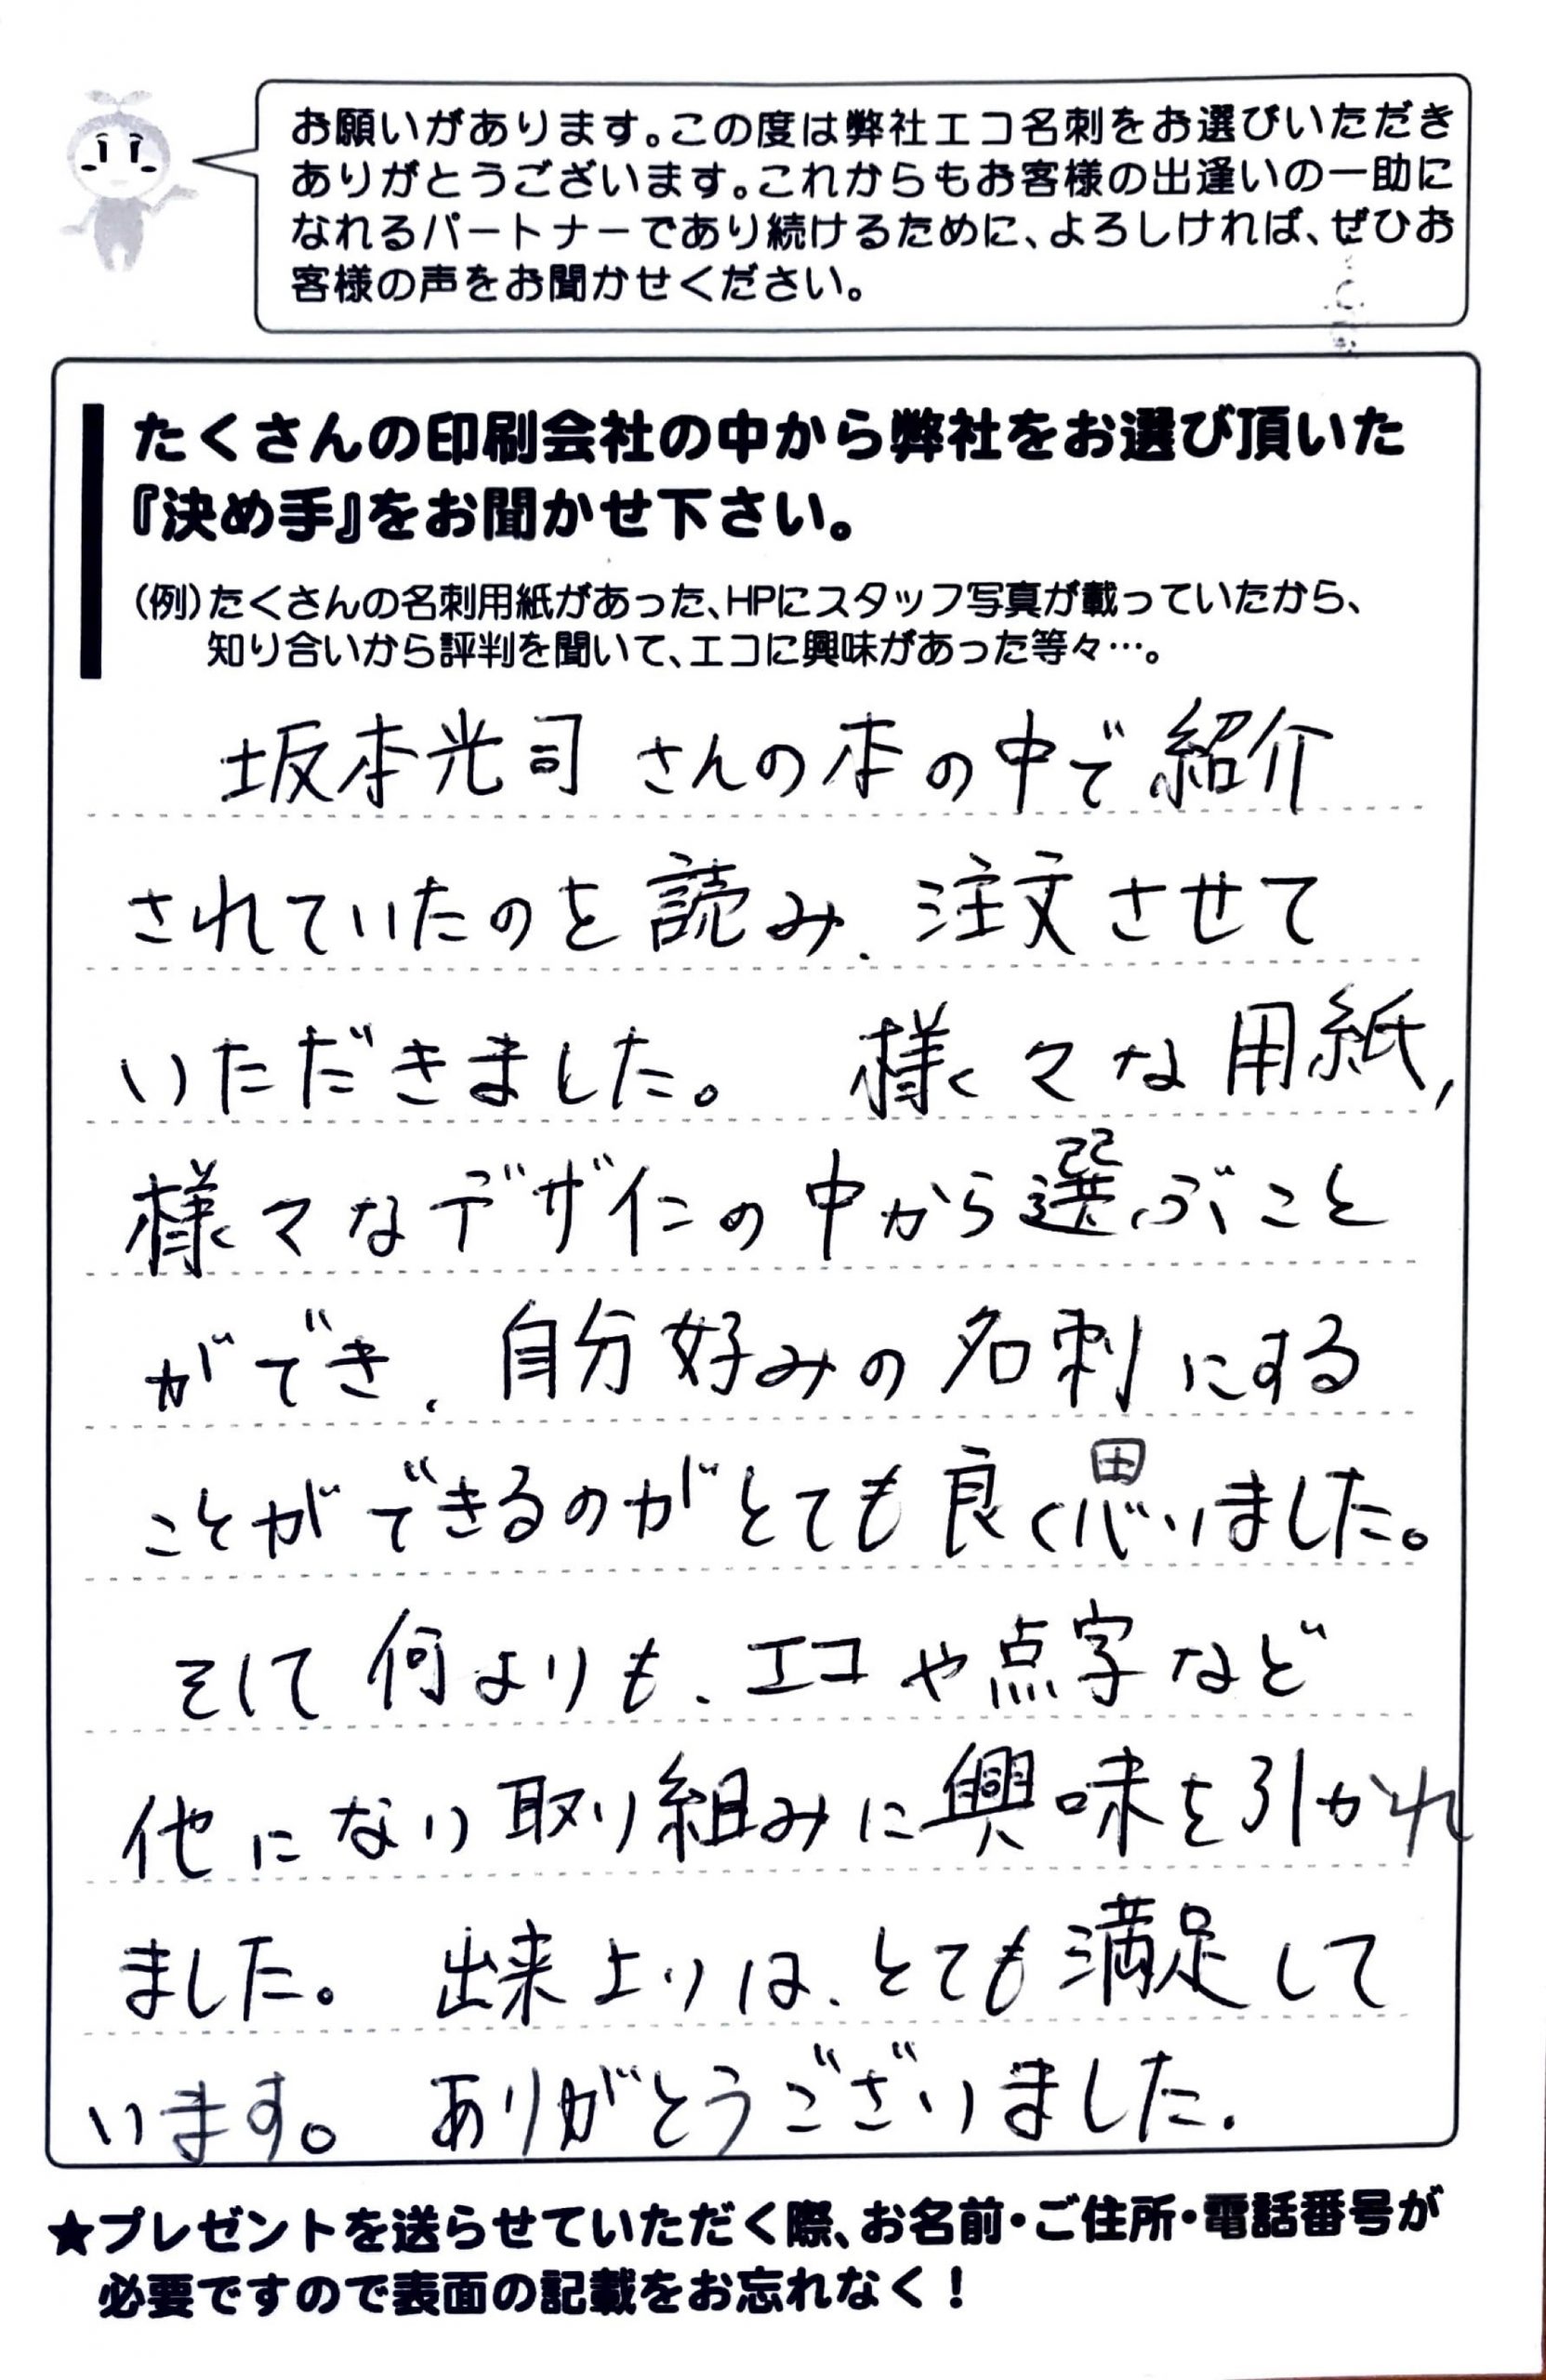 お願いがあります。この度は弊社エコ名刺をお選びいただき
ありがとうございます。これからもお客様の出逢いの一助に
なれるパートナーであり続けるために、よろしければ、ぜひお
客様の声をお聞かせください。
たくさんの印刷会社の中から弊社をお選び頂いた
『決め手』をお聞かせ下さい。
(例)たくさんの名刺用紙があった、HPにスタッフ写真が載っていたから、
知り合いから評判を聞いて、エコに興味があった等々…。
坂本光司さんの本の中で紹介
されていたのを読み、注文させて
いただきました。 様々な用紙,
様々なデザインの中から選ぶこと
ができ、自分好みの名刺にする
ことができるのがとても良く思いました。
そして何よりも、エコや点字など
他にない取り組みに興味を引かれ
ました。 出来上りは、とても満足して
います。 ありがとうございました.
★プレゼントを送らせていただく際、お名前・ご住所・電話番号が
必要ですので表面の記載をお忘れなく!